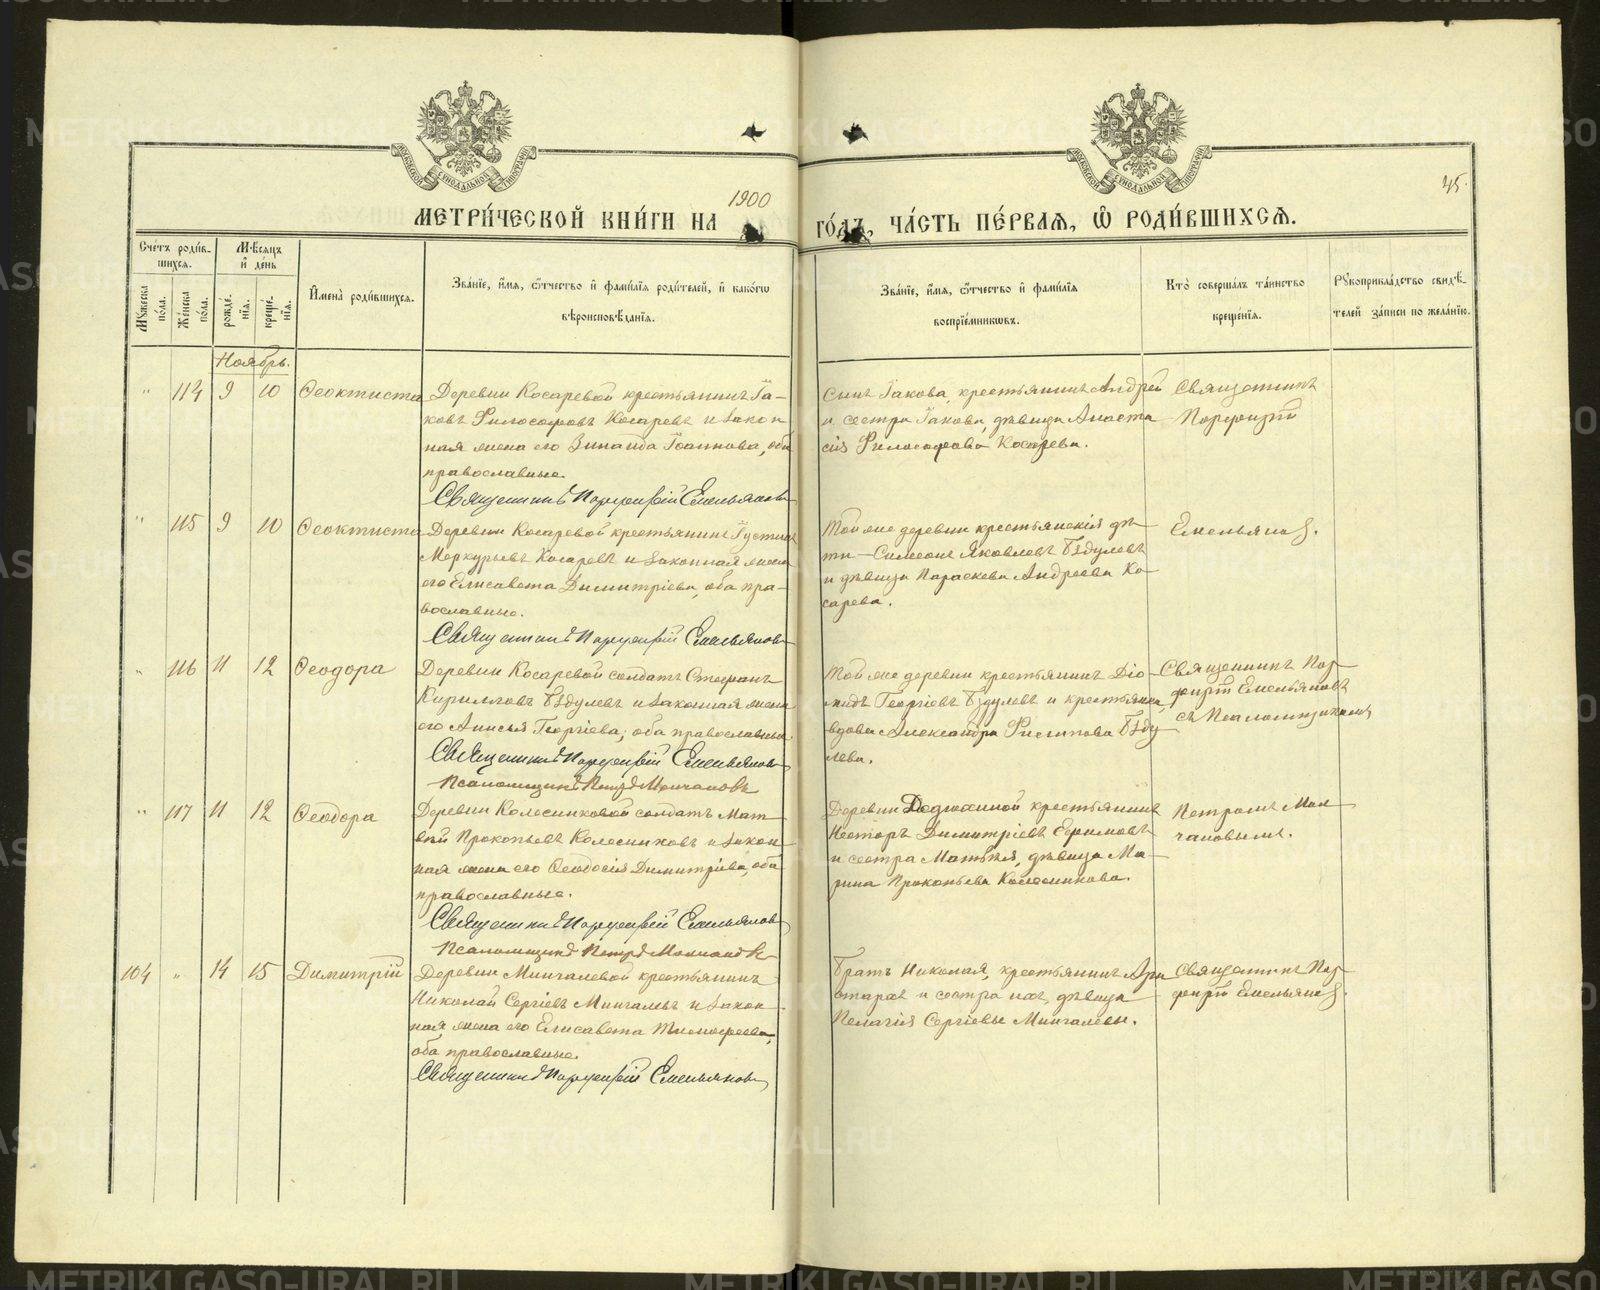 1900
45.
МОСКОВСКОЙ СѴНОДАЛЬНОЙ ТИПОГРАФІИ
МОСКОВСКОЙ СѴНОДАЛЬНОЙ ТИПОГРАФІИ
МЕТРИ́ЧЕСКОЙ КНИ́ГИ НА ГО́ДЪ, ЧА́СТЬ ПЕ́РВАЯ, Ѿ РОДИ́ВШИХСЯ.
Сче́тъ роди́в-
шихся.
Мѣ́сяцъ
и҆ де́нь
Мꙋ́жеска по́ла.
Же́нска по́ла.
рожде́-
нїя.
креще́-
нїя.
И҆мена̀ роди́вшихся.
Зва́нїе, и҆́мя, ѻ҆́тчество и҆ фами́лїя роди́телей, и҆ како́гѡ
вѣроисповѣ́данїя.
Зва́нїе, и҆́мя, ѻ҆́тчество и҆ фами́лїя
воспрїе́мникѡвъ.
Кто̀ соверша́лъ та́инство
креще́нїя.
Рꙋкоприкла́дство свидѣ́-
телей за́писи по жела́нїю.
Ноябрь.
" 114 9 10 Ѳеоктиста
Деревни Косаревой крестьянинъ Іа-
ковъ Философовъ Косаревъ и закон
ная жена его Зинаида Іоаннова, оба
православные.
Священникъ Порфирій Емельяновъ
Сынъ Іакова, крестьянинъ Андрей
и сестра Іакова, дѣвица Анаста
сія Философова Косарева.
Священникъ
Порфирій
" 115 9 10 Ѳеоктиста
Деревни Косаревой крестьянинъ Іустинъ
Меркурьевъ Косаревъ и законная жена
его Елисавета Димитріева, оба пра-
вославные.
Священникъ Порфирій Емельяновъ
Той же деревни крестьянскія дѣ-
ти — Симеонъ Яковлевъ Бздулевъ
и дѣвица Параскева Андреева Ко
сарева.
Емельяновъ.
" 116 11 12 Ѳеодора
Деревни Косаревой солдатъ Стефанъ
Кирилловъ Бздулевъ и законная жена
его Анисья Георгіева, оба православные.
Священникъ Порфирій Емельяновъ
Псаломщикъ Петръ Молчановъ
Той же деревни крестьянинъ Діо-
мидъ Георгіевъ Бздулевъ и крестьянка
вдова Александра Филиппова Бзду
лева.
Священникъ Пор-
фирій Емельяновъ
съ Псаломщикомъ
" 117 11 12 Ѳеодора
Деревни Колесниковой солдатъ Мат
вѣй Прокопьевъ Колесниковъ и закон
ная жена его Ѳеодосія Димитріева, оба
православные.
Священникъ Порфирій Емельяновъ
Псаломщикъ Петръ Молчановъ
Деревни крестьянинъ
Несторъ Димитріевъ Ефимовъ
и сестра Матвѣя, дѣвица Ма-
рина Прокопьева Колесникова.
Петромъ Мол
чановымъ.
104 " 14 15 Димитрій
Деревни Мингалевой крестьянинъ
Николай Сергіевъ Мингалевъ и закон
ная жена его Елисавета Тимофеева,
оба православные.
Священникъ Порфирій Емельяновъ
Братъ Николая, крестьянинъ Ари
стархъ и сестра ихъ, дѣвица
Пелагія Сергіевы Мингалевы.
Священникъ Пор-
фирій Емельяновъ.
METRIKI.GASO-URAL.RU